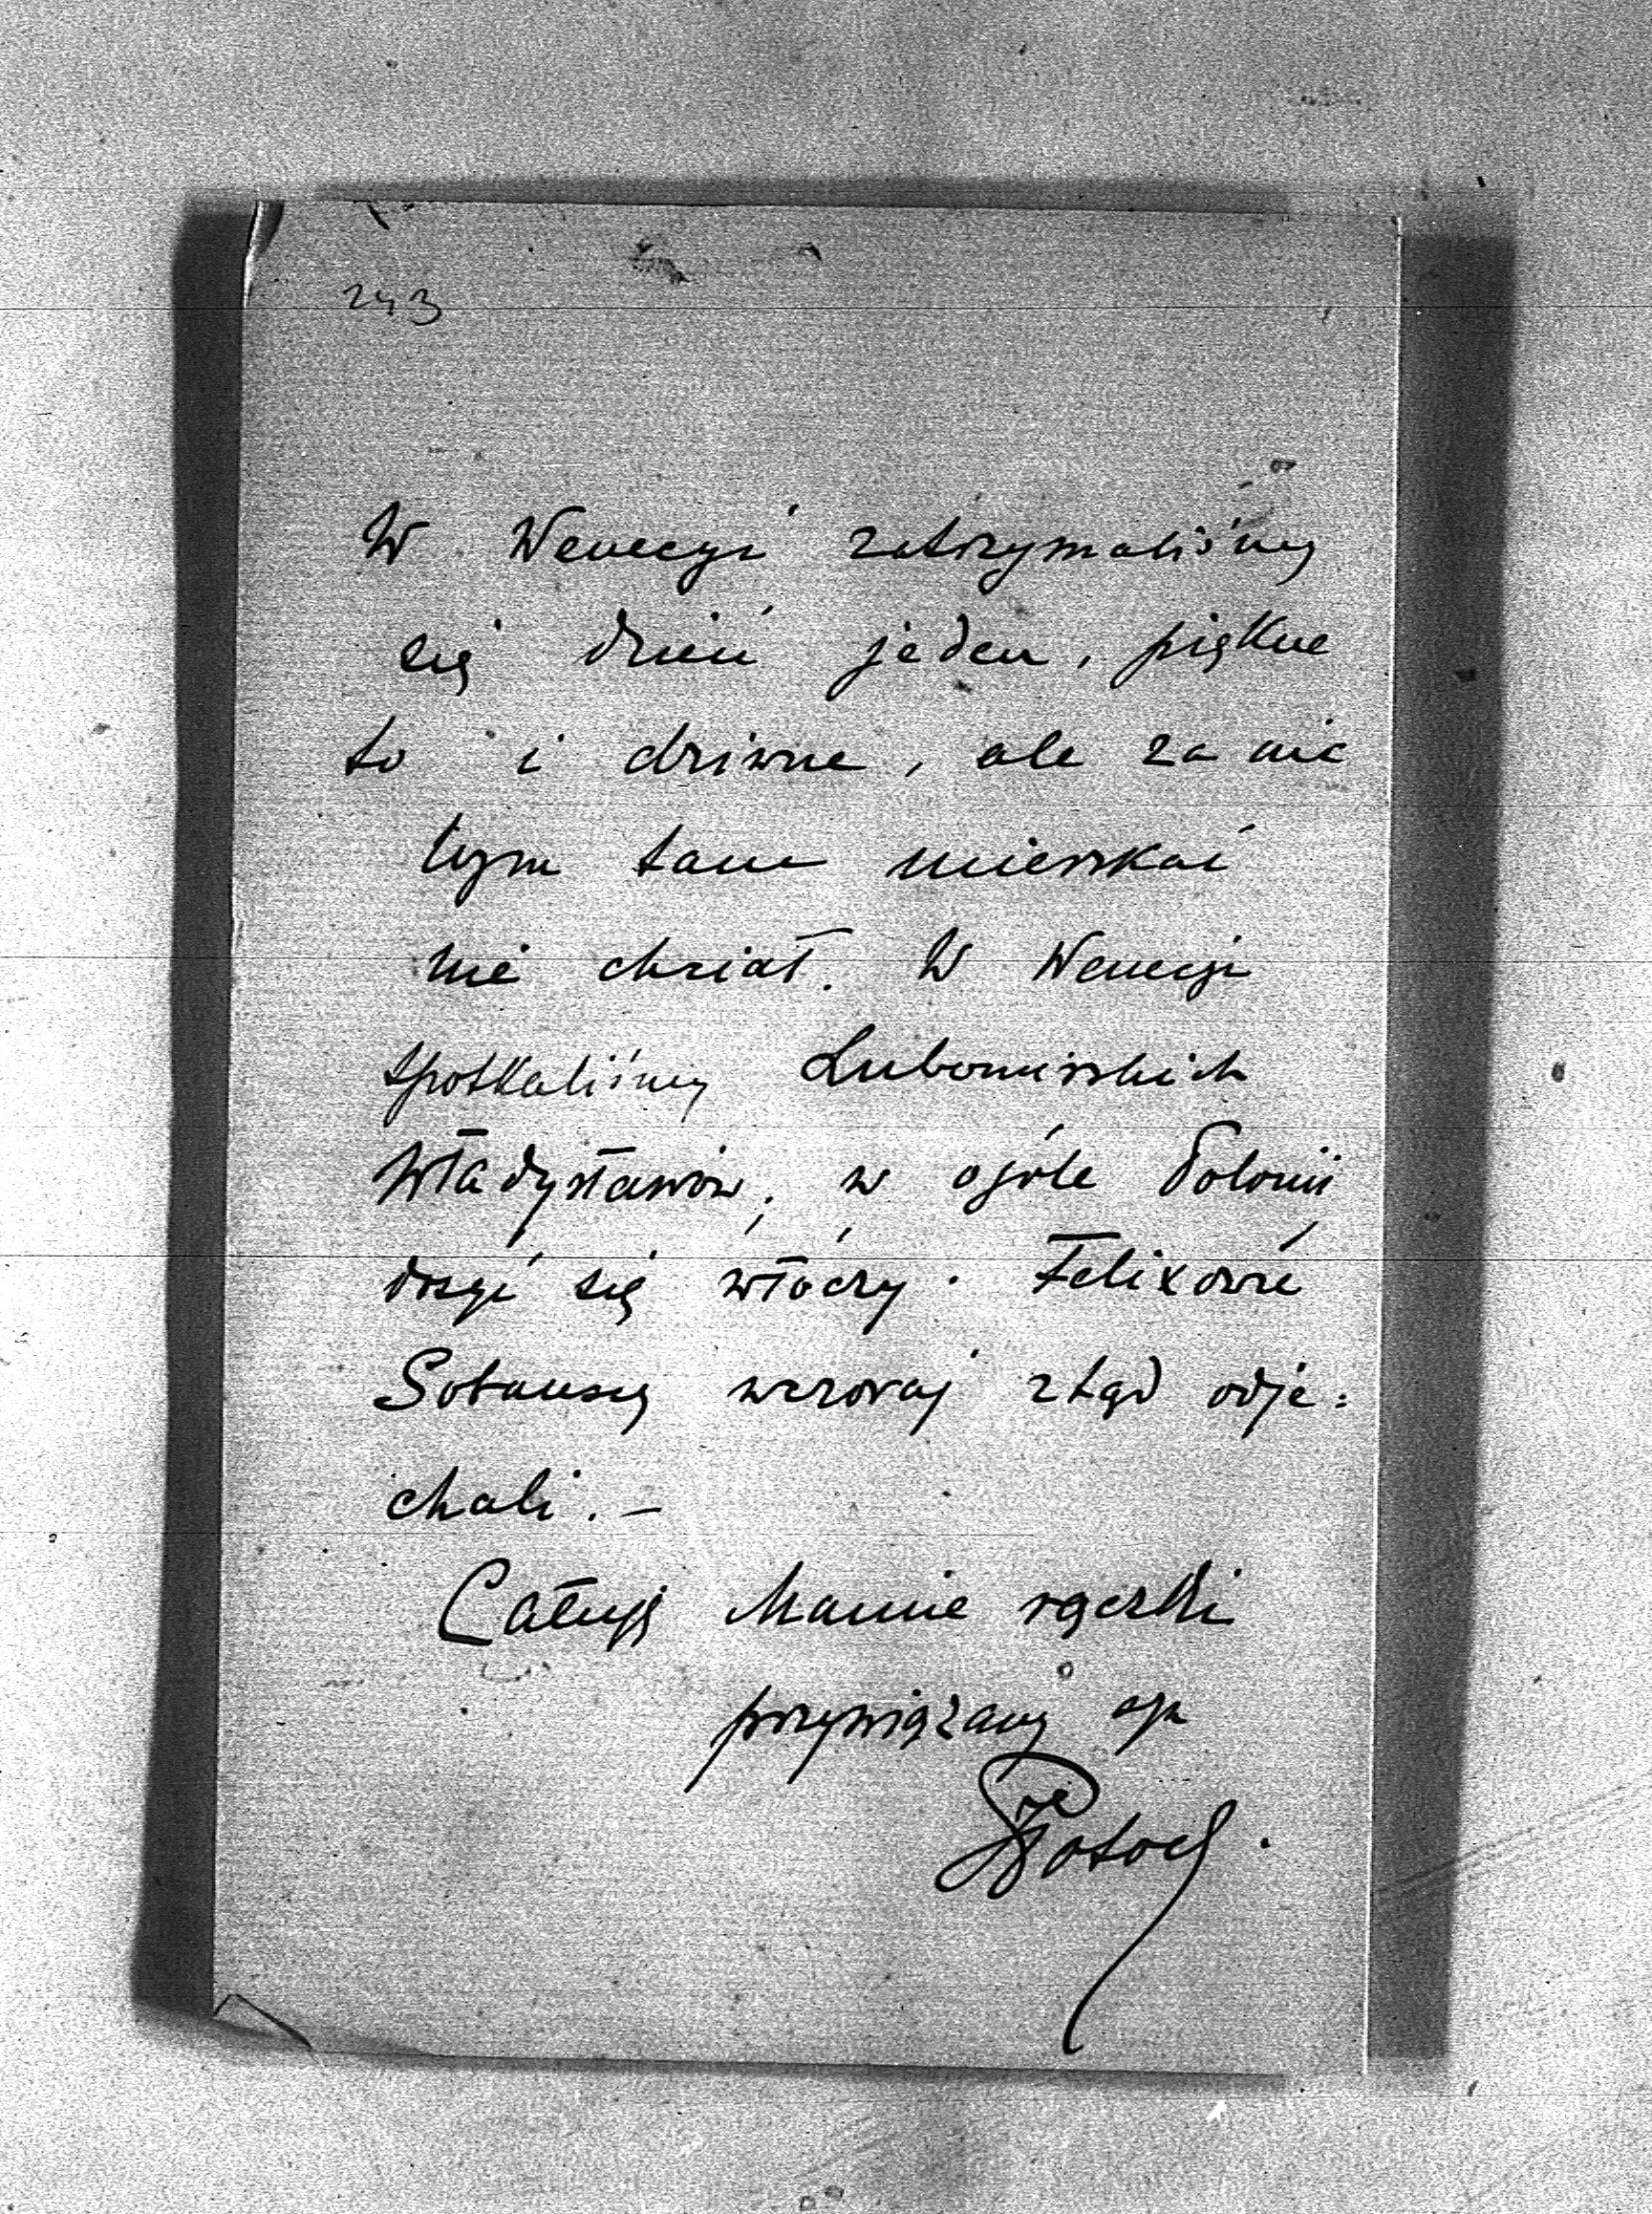 243
W Wenecyi zatrzymaliśmy
się dzień jeden, piękne
to i dziwne, ale za nic
bym tam mieszkać
nie chciał. W Wenecyi
spotkaliśmy Lubomirskich
Władysławów, w ogóle Polonii
dosyć się włóczy. Felixowie
Sobańscy wczoraj ztąd odje=
chali. —
Całuję Mamie rączki
przywiązany syn
Potocki.